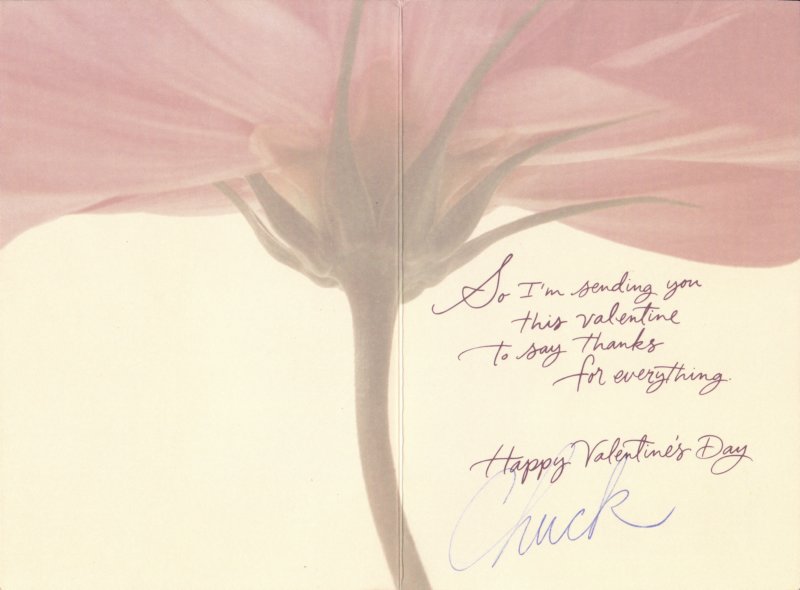 So I'm sending you
this valentine
to say thanks
for everything.
Happy Valentine's Day
Chuck